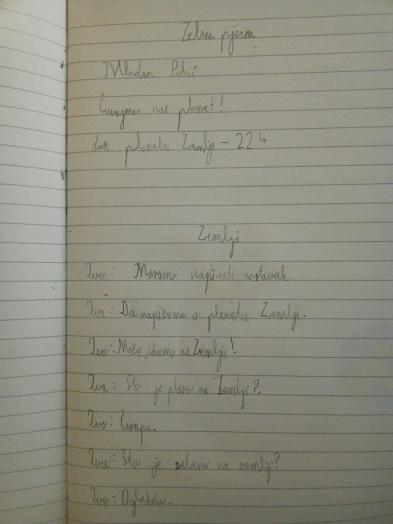 Zelena pjesma
Mladen Pokić
Čuvajmo naš planet!
dan planeta Zemlje - 22.4
Zemlji
Ivo: Moramo napisati sastavak.
Iva: Da napišemo o planetu Zemlji.
Ivo: Može, idemo na Zemlji!
Iva: Što je plavo na Zemlji?
Ivo: Čarapa.
Iva: Što je zeleno na zemlji?
Ivo: Ogledalo.